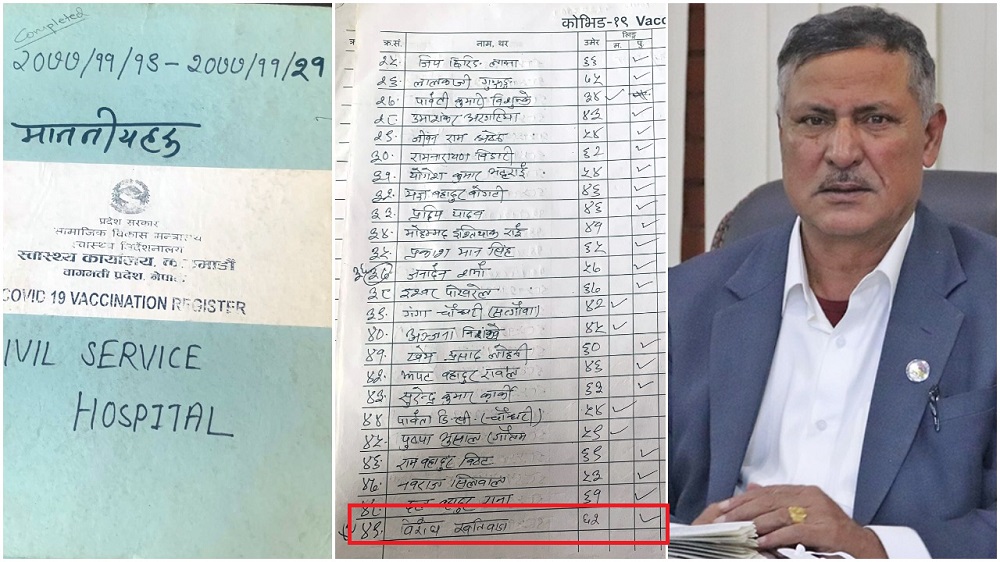 Completed
२०७७/११/१९ – २०७७/११/२१
माननीयहरू
प्रदेश सरकार
सामाजिक विकास मन्त्रालय
स्वास्थ्य निर्देशनालय
स्वास्थ्य कार्यालय, काठमाडौं
वागमती प्रदेश, नेपाल
COVID 19 VACCINATION REGISTER
IVIL SERVICE
HOSPITAL
कोभिड-१९ Vacc
क्र.सं. नाम, थर उमेर लिङ्ग
म. पु.
२६. लालकाजी गुरुङ्ग ७५
२७. पार्वती कुमारी विशुन्के ३४
२८ उमाशंकर अरगरिया ४३
२९. जीवन राम श्रेष्ठ ५४
३०. रामनारायण बिडारी ६२
३१. योगेश कुमार भट्टराई ५४
३२. भक्त बहादुर कोगटी ४६
३३. प्रदिप यादव ४६
३४. मोहम्मद इश्तियाक राई ४१
३५. प्रकाश मान सिंह ६५
जनार्दन शर्मा ५७
३८ ईश्वर पोखरेल ६७
३९. गंगा चौधरी (सत्गौवा) ४२
४०. अञ्जना विशंखे ४५
४१. खेम प्रसाद लोहनी ६०
४२. झपट बहादुर रावल ४६
४३. सुरेन्द्र कुमार कार्की ६३
४४ पार्वता डि.सी. (चौधरी) ५४
४५. पुष्पा भुसाल (गौतम ५९
४६. राम बहादुर विष्ट ६१
४७. नवराज सिलवाल ५३
४८. राना ६१
४९. विरोध खतिवडा ६२